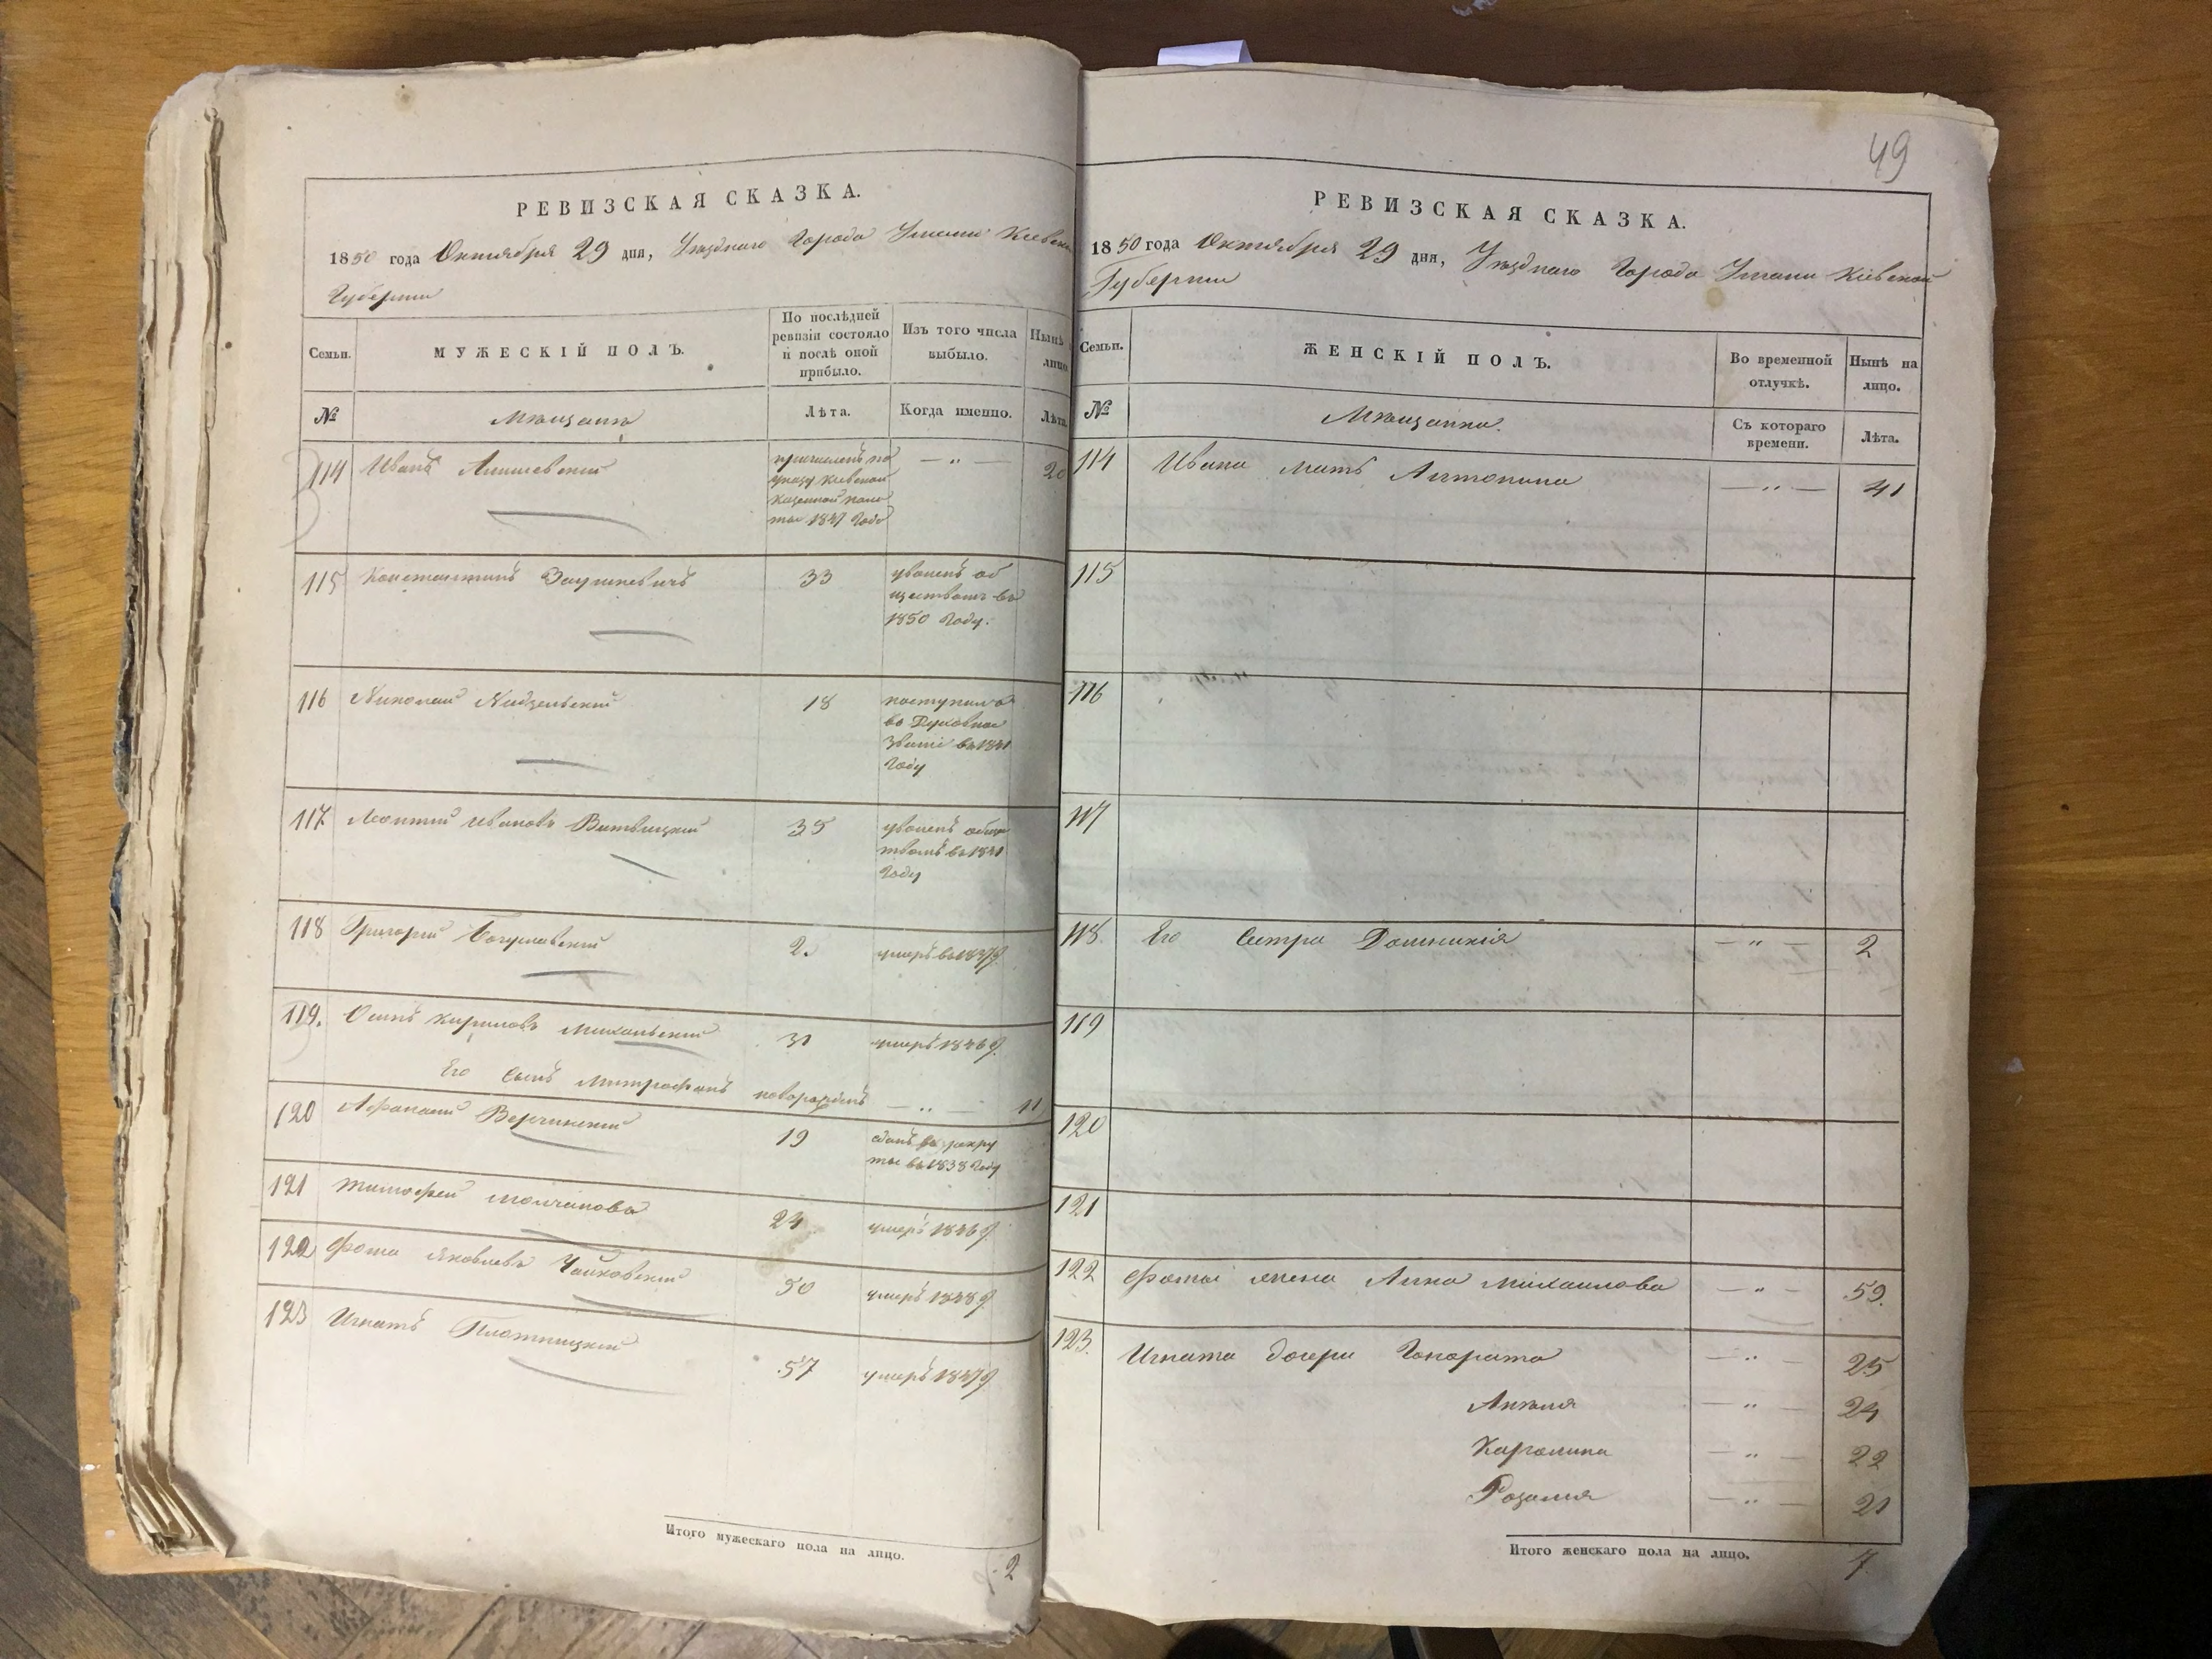 РЕВИЗСКАЯ СКАЗКА.
1850 года Октября 29 дня, Уѣзднаго Города Умани Кіевской
Губерніи
Семьи.
МУЖЕСКІЙ ПОЛЪ.
По послѣдней
ревизіи состояло
и послѣ оной
прибыло.
Изъ того числа
выбыло.
Нынѣ
лицо.
№
Мѣщанъ
Лѣта.
Когда именно.
Лѣта.
114 Иванъ
причисленъ по
указу Кіевской
Казенной пала
ты 1847 Году
— „ —
20
115 Константинъ
33
уволенъ об
ществомъ въ
1850 Году.
116 Николай
18
поступилъ
въ Духовное
Званіе въ 1841
Году
117 Леонтій Ивановъ Витвицкій
35
уволенъ общес
твомъ въ 1841
Году
118 Григорій Богуславскій
2.
умеръ въ
119. Осипъ Кириловъ Михальскій
31
умеръ 1846 г.
Его сынъ Митрофанъ
новорожденъ
— „ —
11
120 Афанасій
19
сданъ въ рекру
ты въ 1838 Году
121 Тимофей Молчановъ
24
умеръ 1846 г.
122 Фома Яковлевъ Чайковскій
50
умеръ 1848 г.
123 Игнатъ Плотницкій
57
умеръ 1847 г.
Итого мужескаго пола на лицо.
2
49
РЕВИЗСКАЯ СКАЗКА.
1850 года Октября 29 дня, Уѣзднаго Города Умани Кіевской
Губерніи
Семьи.
ЖЕНСКІЙ ПОЛЪ.
Во временной
отлучкѣ.
Нынѣ на
лицо.
№
Мѣщанка.
Съ котораго
времени.
Лѣта.
114 Ивана мать Антонина — „ — 41
115
116
117
118 Его Сестра Домникія — „ — 2
119
120
121
122 Фомы жена Анна Михаилова — „ — 59.
123. Игната дочери Гонората — „ — 25
Анѣля — „ — 24
Каролина — „ — 22
Розалія — „ — 21
Итого женскаго пола на лицо.
7